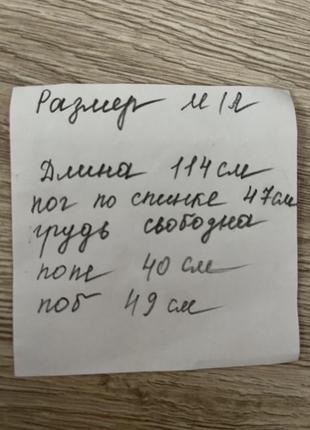 Размер М/Л
Длина 114 см
пог по спинке 47 см
грудь свободна
попт 40 см
поб 49 см